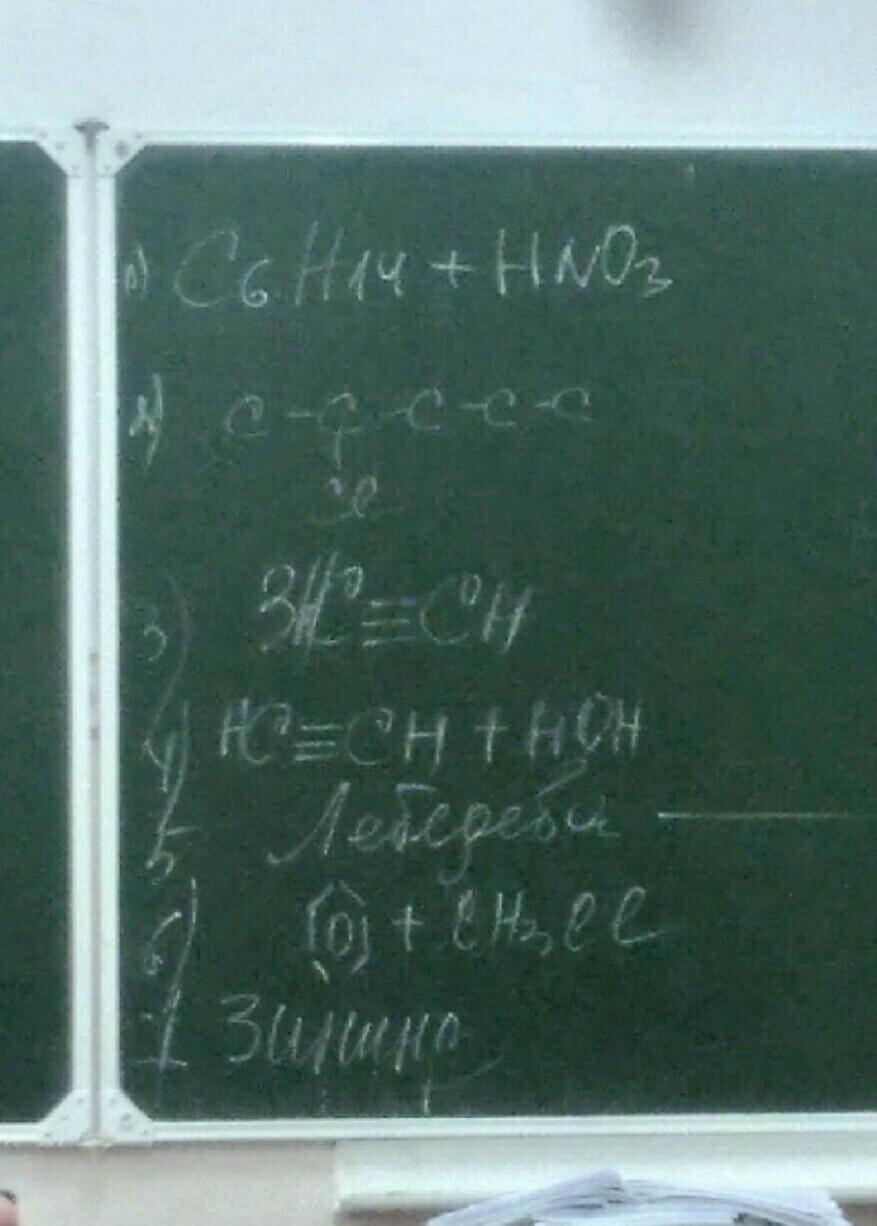 1) C6H14 + HNO3
2) C - C - C - C - C
Cl
3) 3HC≡CH
4) HC≡CH + HOH
5 Лебедева
6) + CH3Cl
7 Зинина